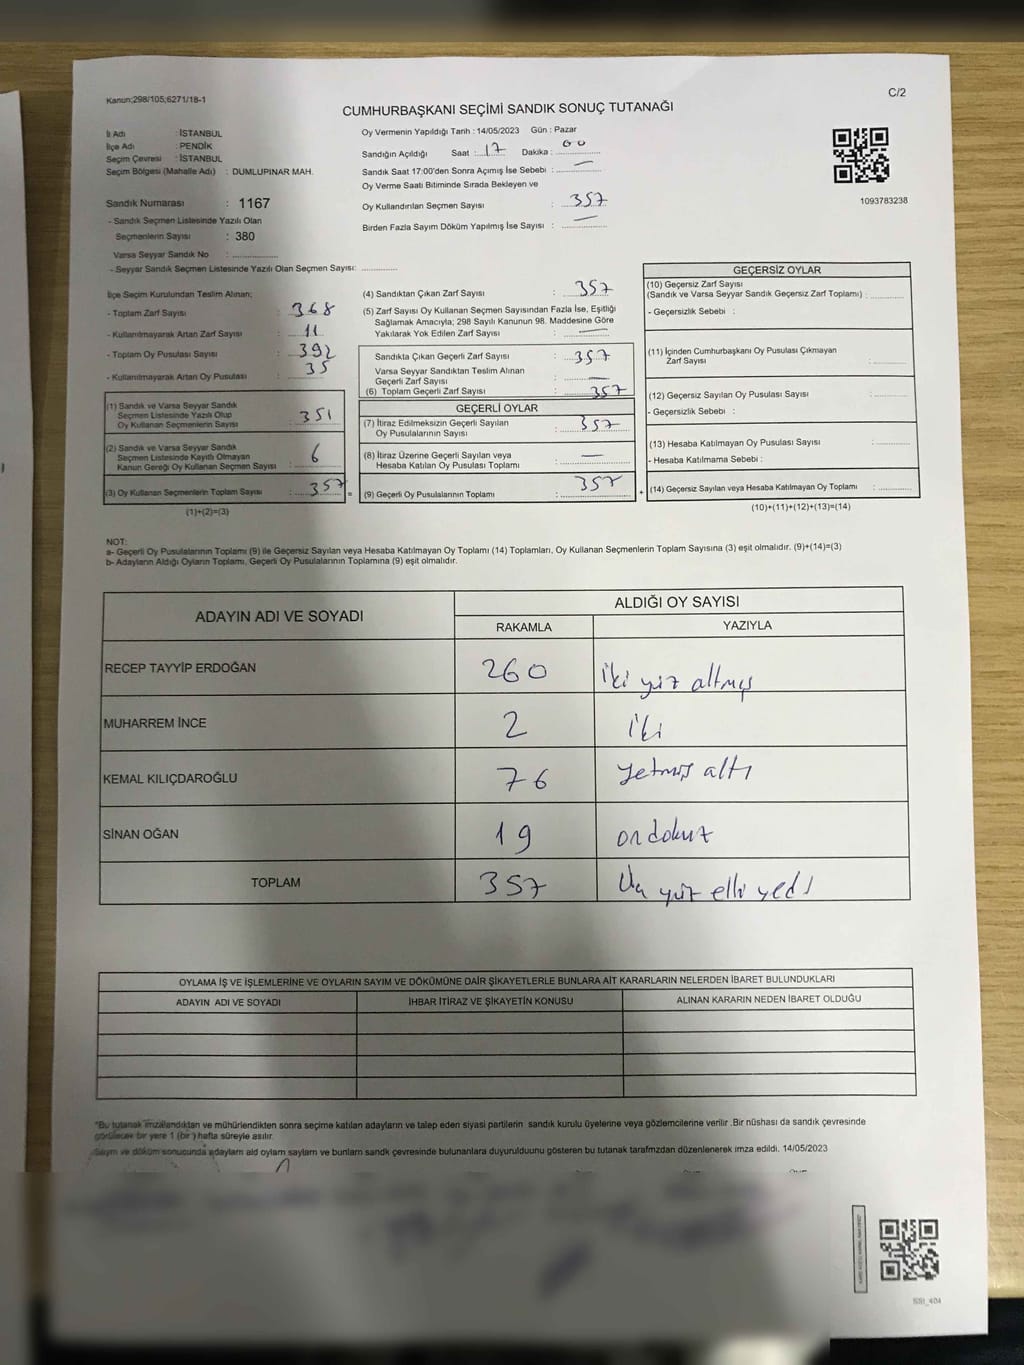 Kanun;298/105;6271/18-1
C/2
CUMHURBAŞKANI SEÇİMİ SANDIK SONUÇ TUTANAĞI
İl Adı : İSTANBUL
İlçe Adı : PENDİK
Seçim Çevresi : İSTANBUL
Seçim Bölgesi (Mahalle Adı) : DUMLUPINAR MAH.
Sandık Numarası : 1167
- Sandık Seçmen Listesinde Yazılı Olan
Seçmenlerin Sayısı : 380
Varsa Seyyar Sandık No : ....................
- Seyyar Sandık Seçmen Listesinde Yazılı Olan Seçmen Sayısı: ..............
Oy Vermenin Yapıldığı Tarih : 14/05/2023 Gün : Pazar
Sandığın Açıldığı Saat : 17 Dakika : 00
Sandık Saat 17:00'den Sonra Açımış İse Sebebi : —
Oy Verme Saati Bitiminde Sırada Bekleyen ve
Oy Kullandırılan Seçmen Sayısı : 357
Birden Fazla Sayım Döküm Yapılmış İse Sayısı : —
1093783238
İlçe Seçim Kurulundan Teslim Alınan;
- Toplam Zarf Sayısı : 368
- Kullanılmayarak Artan Zarf Sayısı : 11
- Toplam Oy Pusulası Sayısı : 392
- Kullanılmayarak Artan Oy Pusulası : 35
(1) Sandık ve Varsa Seyyar Sandık
Seçmen Listesinde Yazılı Olup
Oy Kullanan Seçmenlerin Sayısı : 351
(2) Sandık ve Varsa Seyyar Sandık
Seçmen Listesinde Kayıtlı Olmayan
Kanun Gereği Oy Kullanan Seçmen Sayısı : 6
(3) Oy Kullanan Seçmenlerin Toplam Sayısı : 357 =
(1)+(2)=(3)
(4) Sandıktan Çıkan Zarf Sayısı : 357
(5) Zarf Sayısı Oy Kullanan Seçmen Sayısından Fazla İse, Eşitliği
Sağlamak Amacıyla; 298 Sayılı Kanunun 98. Maddesine Göre
Yakılarak Yok Edilen Zarf Sayısı : —
Sandıkta Çıkan Geçerli Zarf Sayısı : 357
Varsa Seyyar Sandıktan Teslim Alınan
Geçerli Zarf Sayısı : —
(6) Toplam Geçerli Zarf Sayısı : 357
GEÇERLİ OYLAR
(7) İtiraz Edilmeksizin Geçerli Sayılan
Oy Pusulalarının Sayısı : 357
(8) İtiraz Üzerine Geçerli Sayılan veya
Hesaba Katılan Oy Pusulası Toplamı : —
(9) Geçerli Oy Pusulalarının Toplamı : 357 +
GEÇERSİZ OYLAR
(10) Geçersiz Zarf Sayısı
(Sandık ve Varsa Seyyar Sandık Geçersiz Zarf Toplamı) : ............
- Geçersizlik Sebebi :
(11) İçinden Cumhurbaşkanı Oy Pusulası Çıkmayan
Zarf Sayısı : ............
(12) Geçersiz Sayılan Oy Pusulası Sayısı : ............
- Geçersizlik Sebebi :
(13) Hesaba Katılmayan Oy Pusulası Sayısı : ............
- Hesaba Katılmama Sebebi :
(14) Geçersiz Sayılan veya Hesaba Katılmayan Oy Toplamı : ............
(10)+(11)+(12)+(13)=(14)
NOT:
a- Geçerli Oy Pusulalarının Toplamı (9) ile Geçersiz Sayılan veya Hesaba Katılmayan Oy Toplamı (14) Toplamları, Oy Kullanan Seçmenlerin Toplam Sayısına (3) eşit olmalıdır. (9)+(14)=(3)
b- Adayların Aldığı Oyların Toplamı, Geçerli Oy Pusulalarının Toplamına (9) eşit olmalıdır.
ADAYIN ADI VE SOYADI
ALDIĞI OY SAYISI
RAKAMLA YAZIYLA
RECEP TAYYİP ERDOĞAN 260 İki yüz altmış
MUHARREM İNCE 2 İki
KEMAL KILIÇDAROĞLU 76 Yetmiş altı
SİNAN OĞAN 19 on dokuz
TOPLAM 357 yüz elli yedi
OYLAMA İŞ VE İŞLEMLERİNE VE OYLARIN SAYIM VE DÖKÜMÜNE DAİR ŞİKAYETLERLE BUNLARA AİT KARARLARIN NELERDEN İBARET BULUNDUKLARI
ADAYIN ADI VE SOYADI İHBAR İTİRAZ VE ŞİKAYETİN KONUSU ALINAN KARARIN NEDEN İBARET OLDUĞU
"Bu tutanak imzalandıktan ve mühürlendikten sonra seçime katılan adayların ve talep eden siyasi partilerin sandık kurulu üyelerine veya gözlemcilerine verilir .Bir nüshası da sandık çevresinde
görülecek bir yere 1 (bir ) hafta süreyle asılır.
Sayım ve döküm sonucunda adayların ald oyların sayları ve bunların sandk çevresinde bulunanlara duyurulduunu gösteren bu tutanak tarafmzdan düzenlenerek imza edildi. 14/05/2023